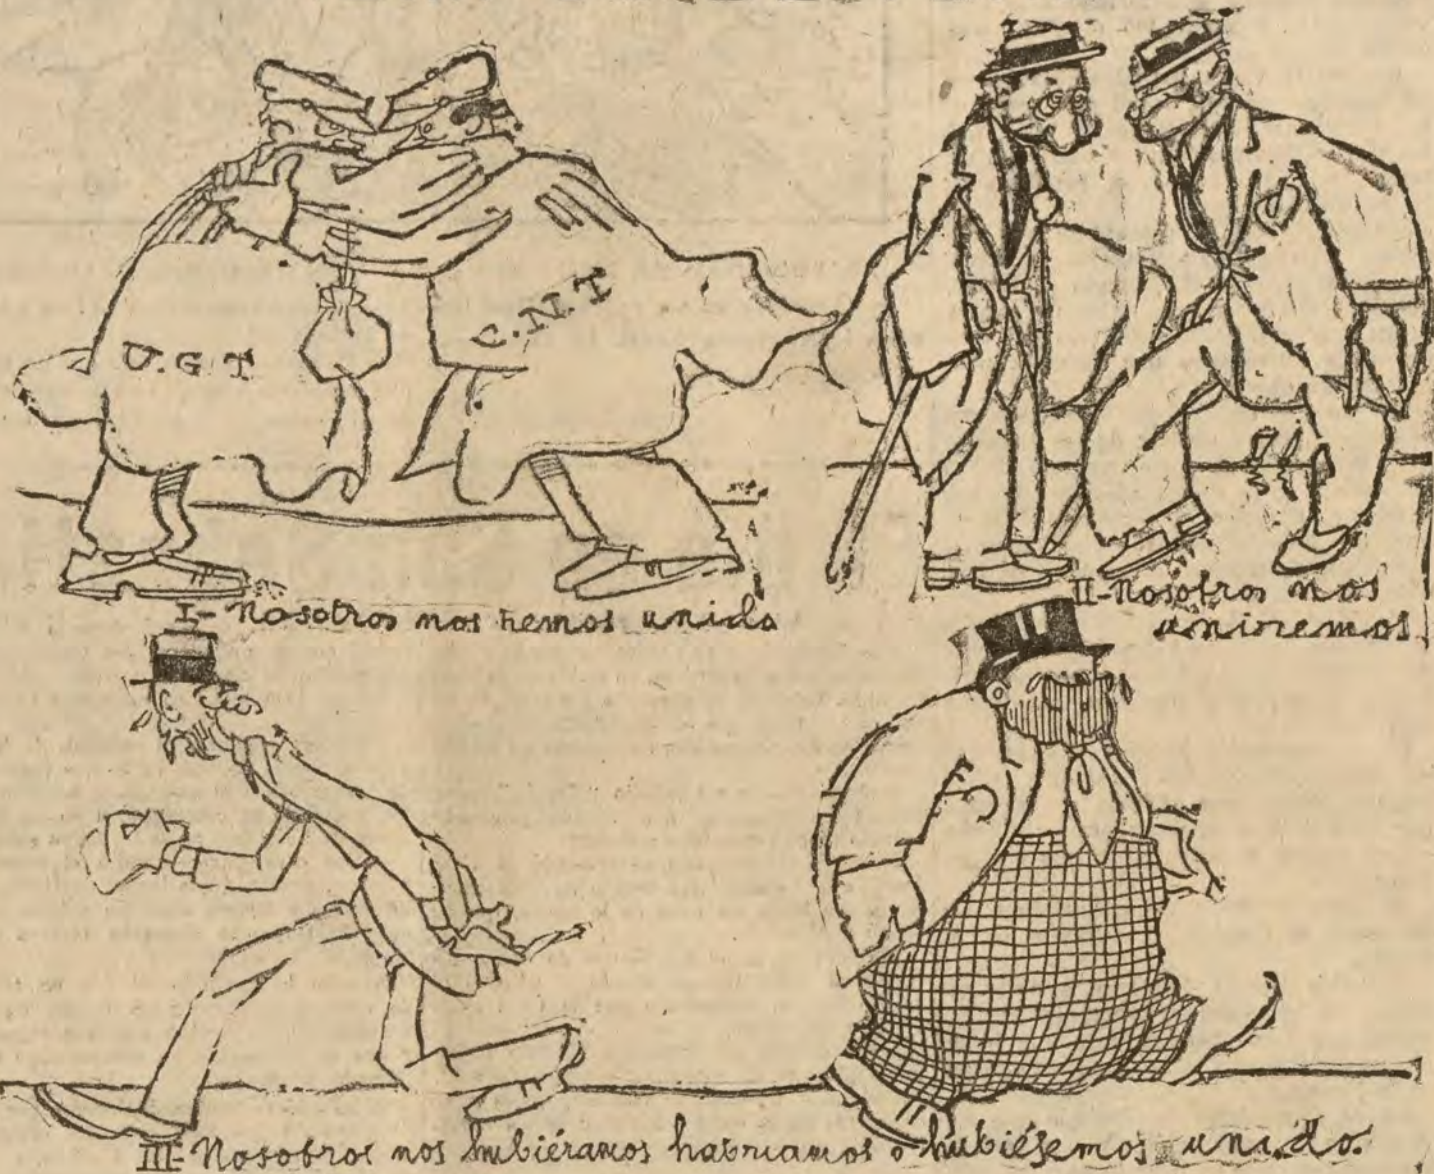 U.G.T
C.N.T
I-Nosotros nos hemos unido
II-Nosotros nos
uniremos
III-Nosotros nos hubiéramos habriamos o hubiésemos unido.